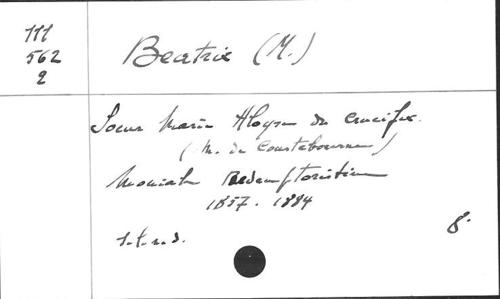 111
562
2
Beatrix (M.)
Soeur Marie Aloyse du Crucifix.
(M. de Courtebourne)
Moniale Rédemptoristine
1857 - 1884
s.l.n.d.
8°